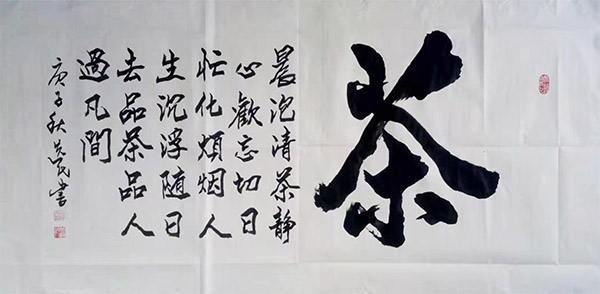 茶
晨泡清茶静
心歡忘切日
忙化煩烟人
生沉浮随日
去品茶品人
過凡間
庚子秋書